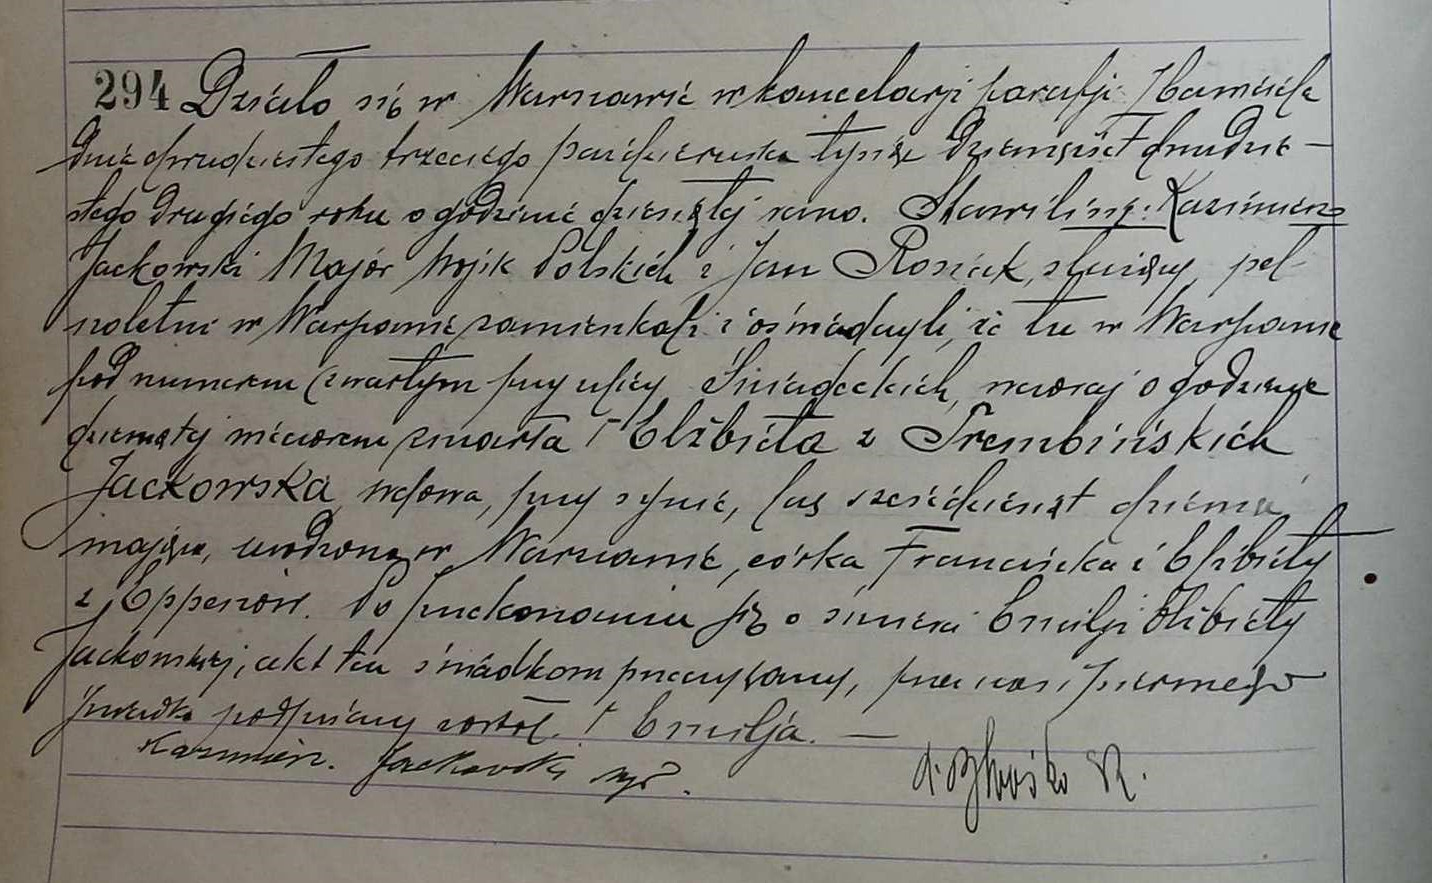 294 Działo się w Warszawie w kancelarji parafji Zbawiciela
dnia dwudziestego trzeciego października tysiąc dziewięćset dwudzie-
stego drugiego roku o godzinie dziesiątej rano. Stawili się: Kazimierz
Jackowski Major Wojsk Polskich i Jan Rosiak, służący, peł-
noletni w Warszawie zamieszkali i oświadczyli, że tu w Warszawie
pod numerem czwartym przy ulicy Śniadeckich, wczoraj o godzinie
dziewiątej wieczorem zmarła ⊤ Elżbieta z Trembińskich
Jackowska, wdowa, przy synie, lat sześćdziesiąt dziewięć
mająca, urodzona w Warszawie, córka Franciszka i Elżbiety
z Eppenów. Po przekonaniu się o śmierci Emilji Elżbiety
Jackowskiej, akt ten świadkom przeczytany, przez nas i pierwszego
świadka podpisany został. ⊤ Emilja. —
Kazimierz Jackowski mjr.